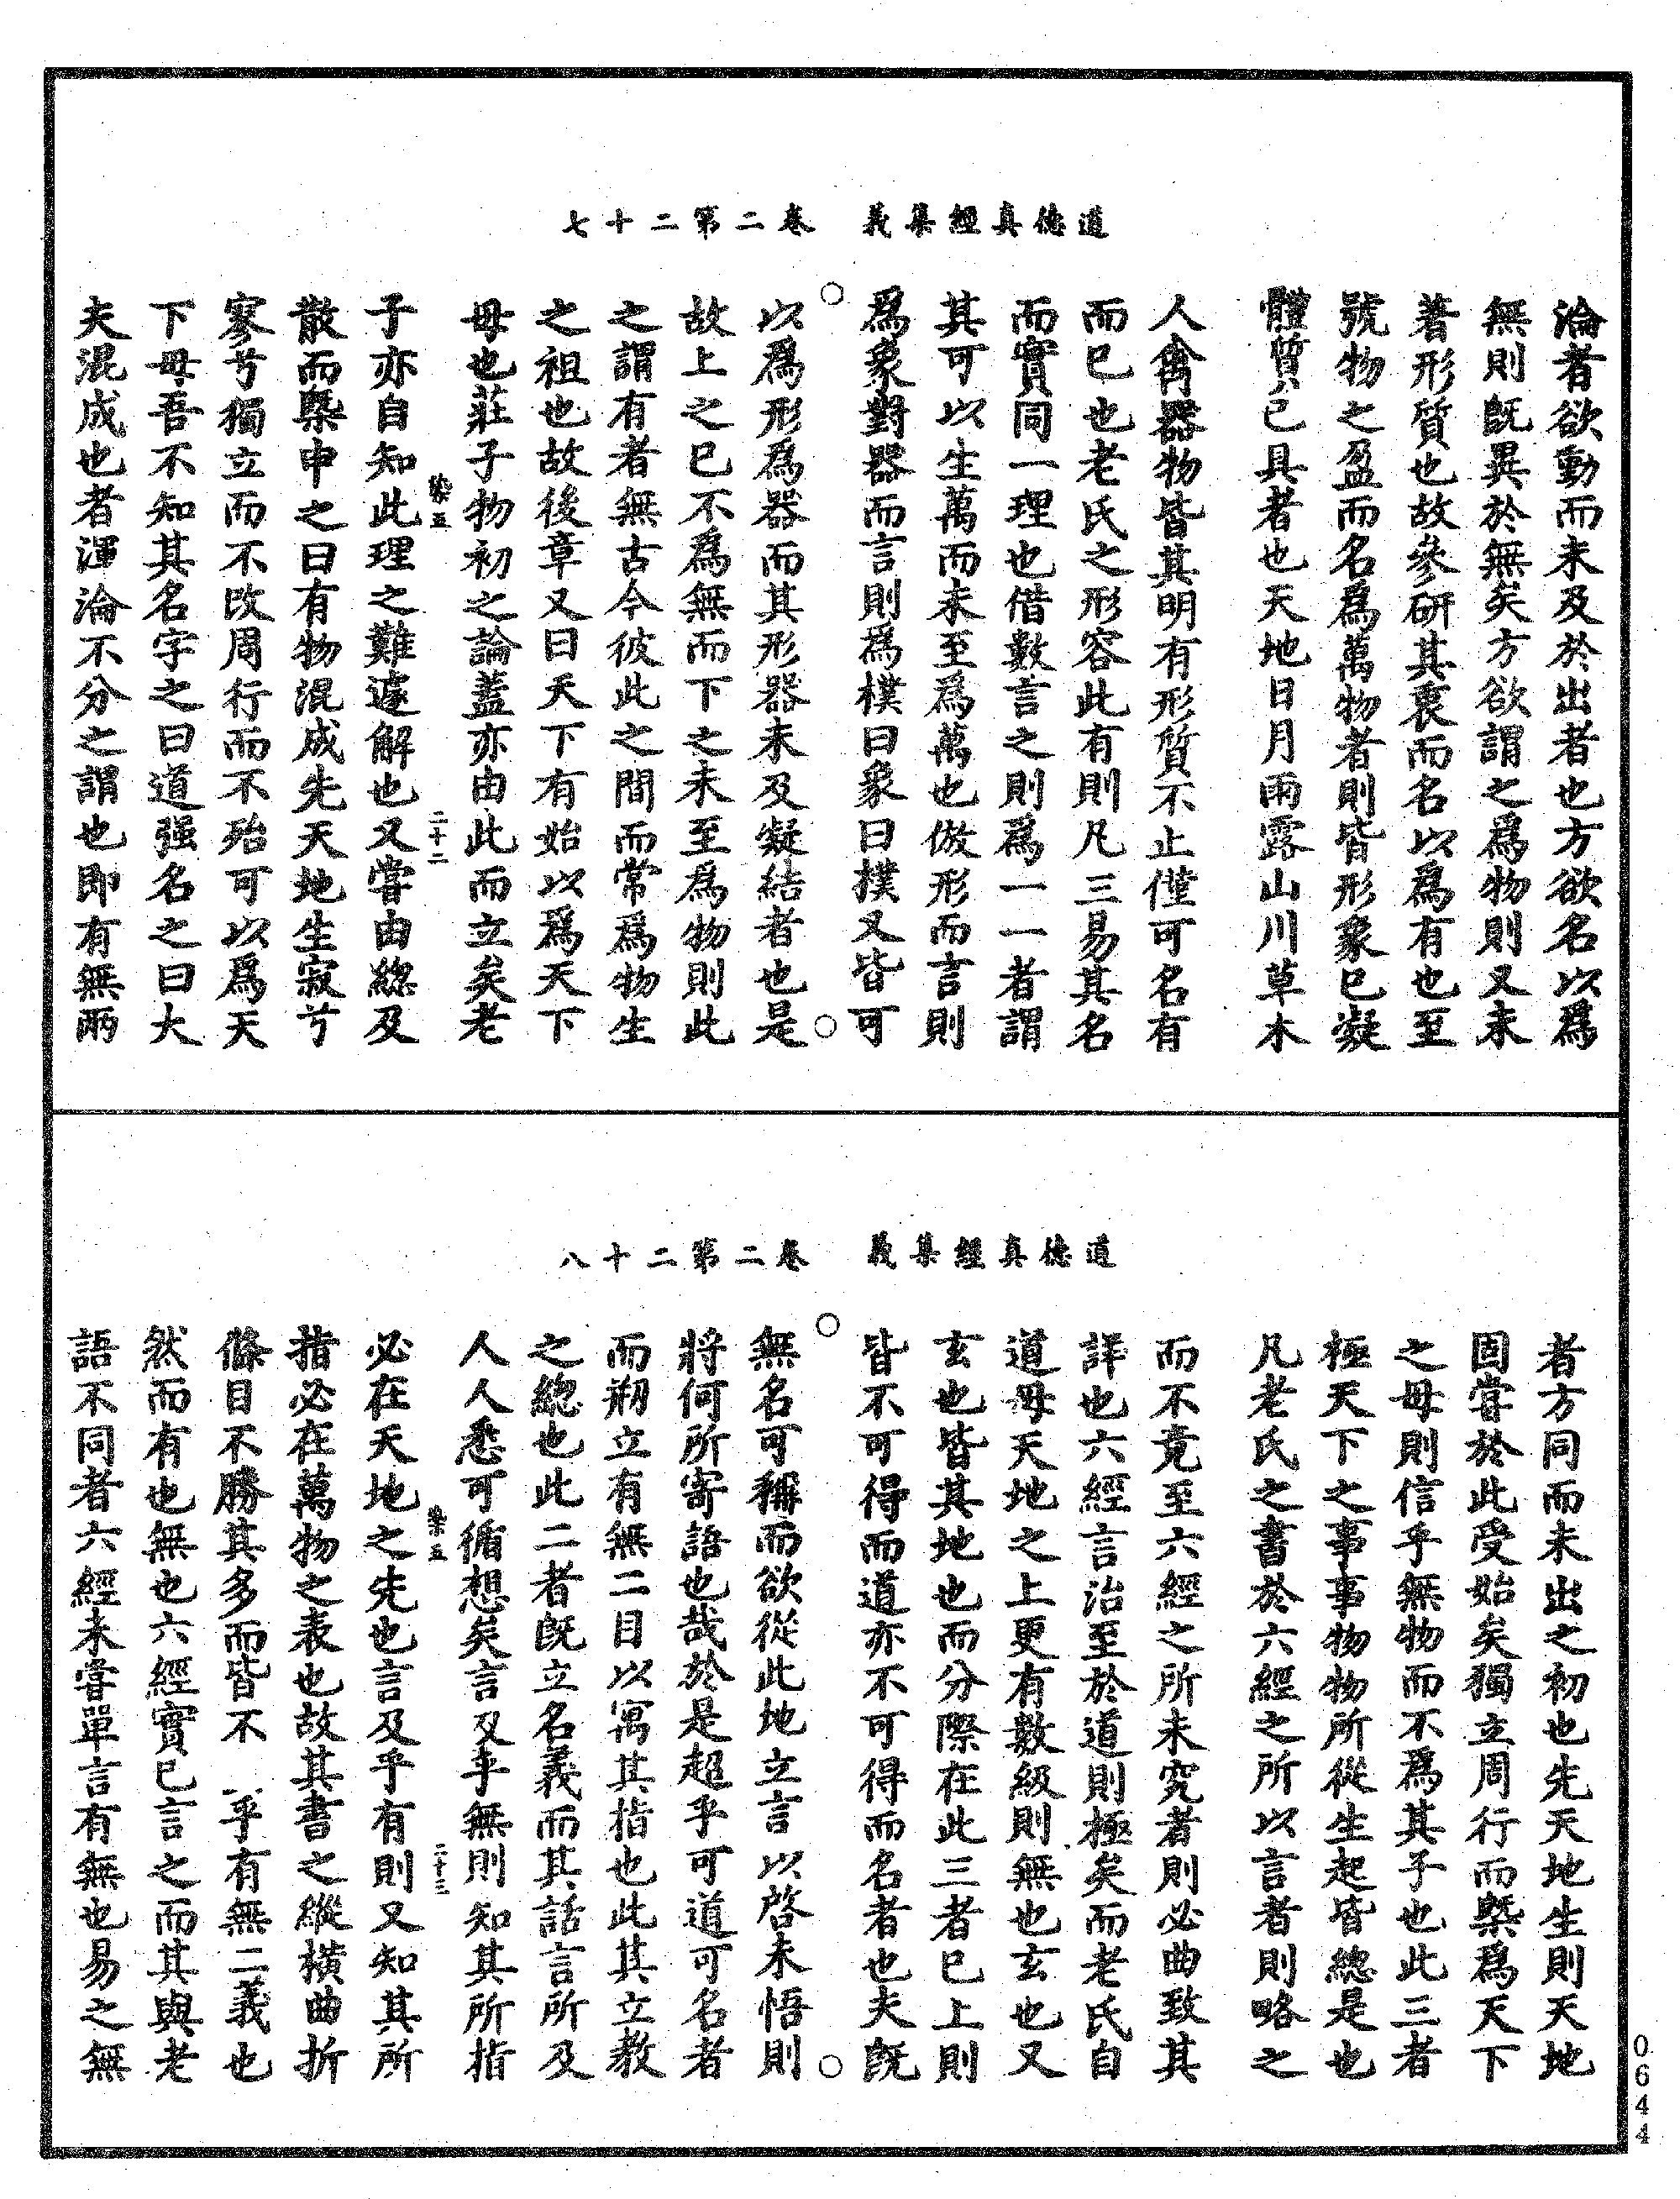 道德真經集義　卷二第二十七
淪者欲動而未及於出者也方欲名以爲
無則既異於無矣方欲謂之爲物則又未
著形質也故參研其裏而名以爲有也至
號物之盈而名爲萬物者則皆形象已凝
體質已具者也天地日月雨露山川草木
人禽器物皆其明有形質不止僅可名有
而已也老氏之形容此有則凡三易其名
而實同一理也借數言之則爲一一者謂
其可以生萬而未至爲萬也倣形而言則
爲象對器而言則爲樸曰象曰樸又皆可
以爲形爲器而其形器未及凝結者也是
故上之已不爲無而下之未至爲物則此
之謂有者無古今彼此之間而常爲物生
之祖也故後章又曰天下有始以爲天下
母也莊子物初之論蓋亦由此而立矣老
子亦自知此理之難遽解也又嘗由總及
染五
二十二
散而槩申之曰有物混成先天地生寂兮
寥兮獨立而不改周行而不殆可以爲天
下母吾不知其名字之曰道强名之曰大
夫混成也者渾淪不分之謂也即有無兩
道德真經集義　卷二第二十八
者方同而未出之初也先天地生則天地
固嘗於此受始矣獨立周行而槩爲天下
之母則信乎無物而不爲其子也此三者
極天下之事事物物所從生起皆總是也
凡老氏之書於六經之所以言者則略之
而不竟至六經之所未究者則必曲致其
詳也六經言治至於道則極矣而老氏自
道母天地之上更有數級則無也玄也又
玄也皆其地也而分際在此三者已上則
皆不可得而道亦不可得而名者也夫既
無名可稱而欲從此地立言以啓未悟則
將何所寄語也哉於是超乎可道可名者
而剏立有無二目以寓其指也此其立教
之總也此二者既立名義而其話言所及
人人悉可循想矣言及乎無則知其所指
必在天地之先也言及乎有則又知其所
染五
二十三
指必在萬物之表也故其書之縱橫曲折
條目不勝其多而皆不　乎有無二義也
然而有也無也六經實已言之而其與老
語不同者六經未嘗單言有無也易之無
0644